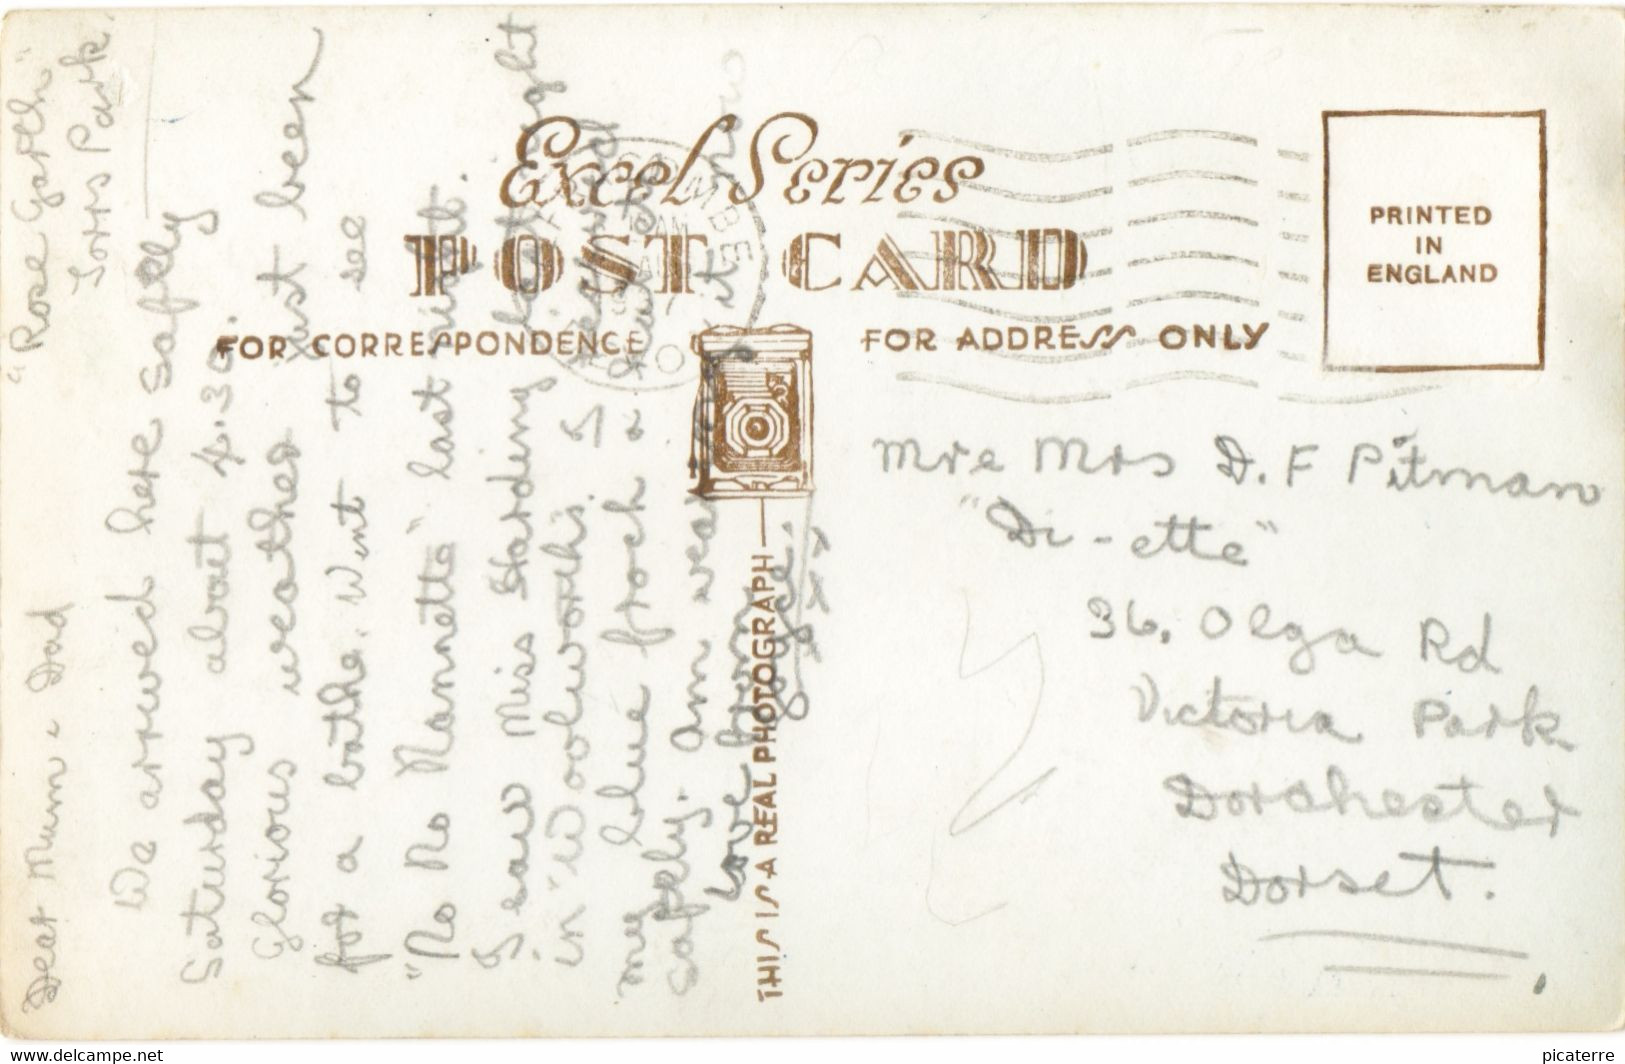 "Rose Garth"
Torrs Park.
Dear Mum & Dad
We arrived here safely
Saturday about 4.30.
Glorious weather just been
for a bathe. Went to see
"No No Nannette" last night.
I saw Miss Harding last night
in "Woolworth's." I received
my blue frock & hat
safely. Am wearing it now
Love from
x x x
Excel Series
POST CARD
FOR CORRESPONDENCE
FOR ADDRESS ONLY
PRINTED
IN
ENGLAND
THIS IS A REAL PHOTOGRAPH
Mr e Mrs D. F Pitman
"Di-ette"
36, Olga Rd
Victoria Park
Dorchester
Dorset.
www.delcampe.net
picaterre